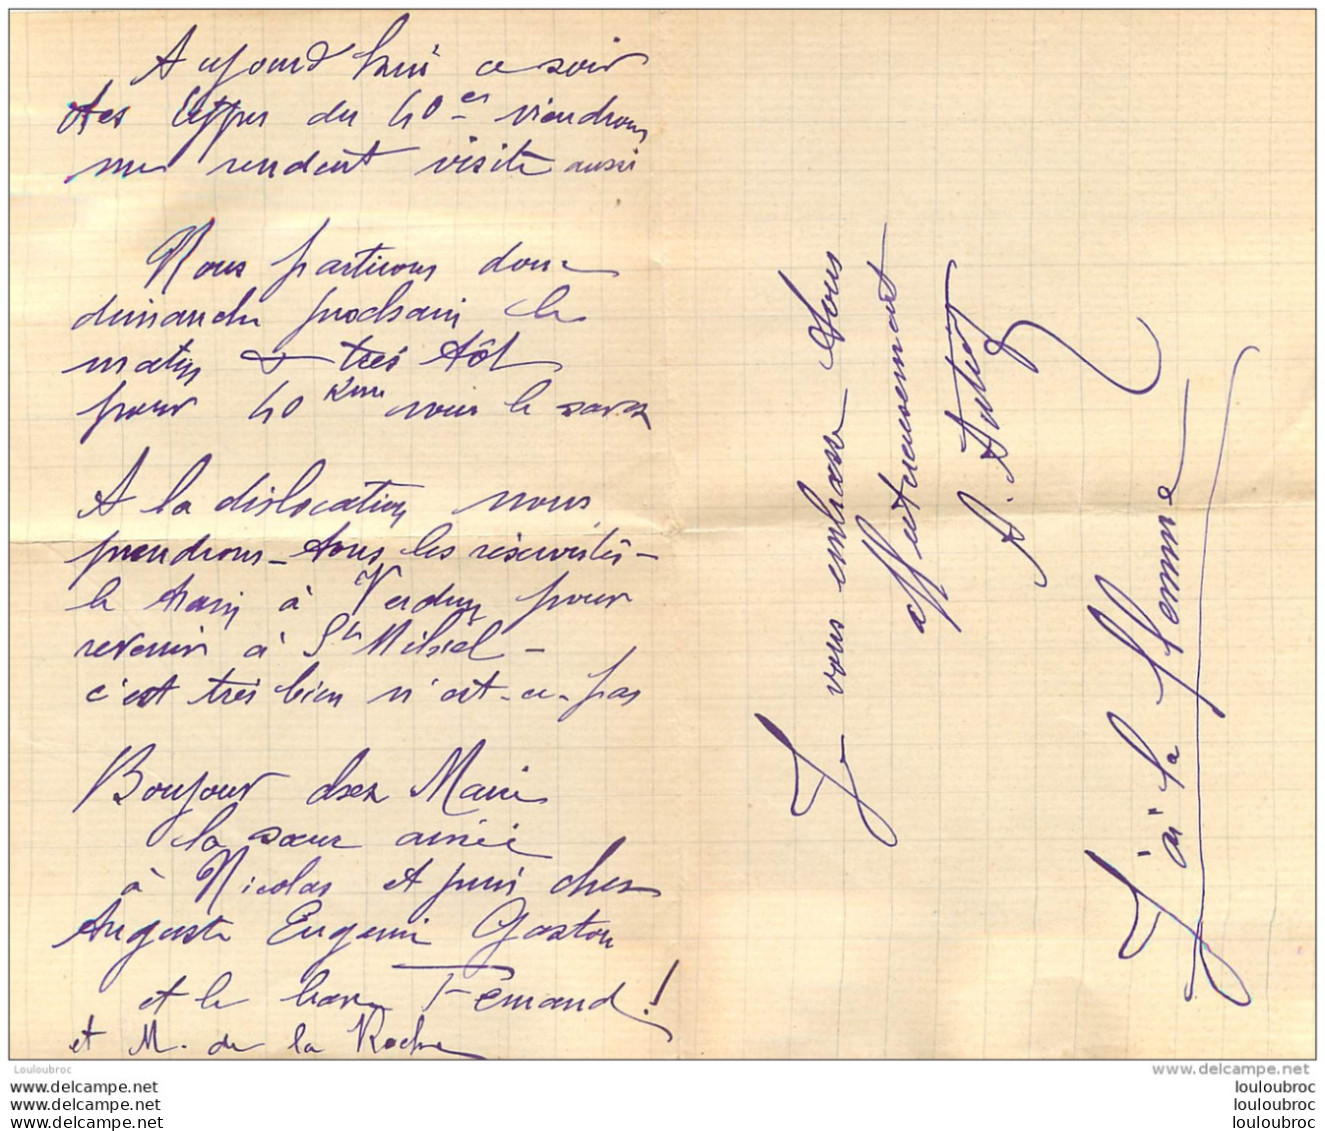 Aujourd'hui ce soir
des du 40es viendrons
me rendent visite aussi
Nous partirons donc
dimanche prochain le
matin très tôt
pour 40 kme vous le savez
A la dislocation nous
prendrons - tous les réservistes -
le train à Verdun pour
revenir à St Mihiel -
c'est très bien n'est-ce-pas
Bonjour chez Marie
la sœur ainée
à Nicolas et puis chez
Auguste Eugenie Gaston
et le Fernand !
et M. de la Roche
Je vous embrasse tous
affectueusement
A.
J'ai "la flemme
Louloubroc
www.delcampe.net
www.delcampe.net
www.delcampe.net
www.delcampe.net
louloubroc
louloubroc
louloubroc